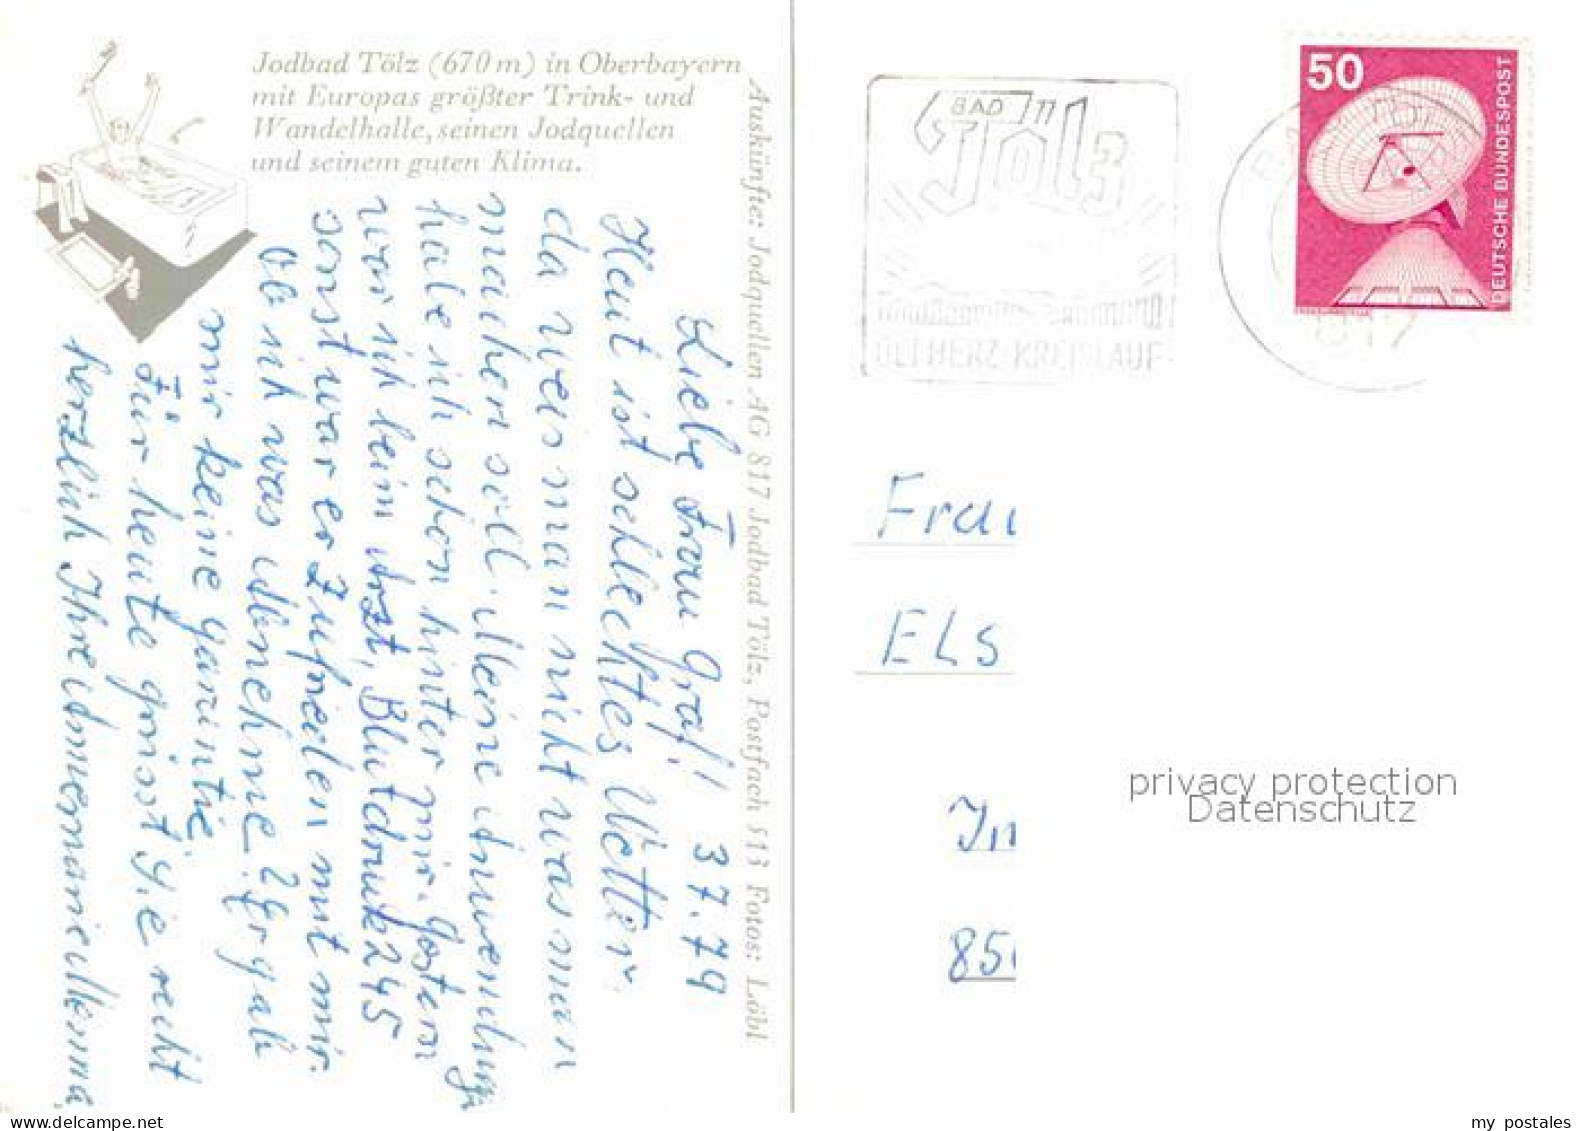 Jodbad Tölz (670 m) in Oberbayern
mit Europas größter Trink- und
Wandelhalle, seinen Jodquellen
und seinem guten Klima.
Auskünfte: Jodquellen AG 817 Jodbad Tölz, Postfach 513 Fotos: Löbl
Liebe Frau Graf! 3 7. 79
Heut ist schlechtes Wetter.
da weis man nicht was man
machen soll. Meine Anwendung
habe ich schon hinter mir. Gestern
war ich beim Arzt, Blutdruck 245
sonst war er Zufrieden mit mir.
Ob ich was Abnehme? Er gab
mir keine Garintie
Für heute grüsst Sie recht
herzlich Ihre
BAD
Tölz
BEI HERZ-KREISLAUF-
50
DEUTSCHE BUNDESPOST
817
Frau
Els
85
privacy protection
Datenschutz
my postales